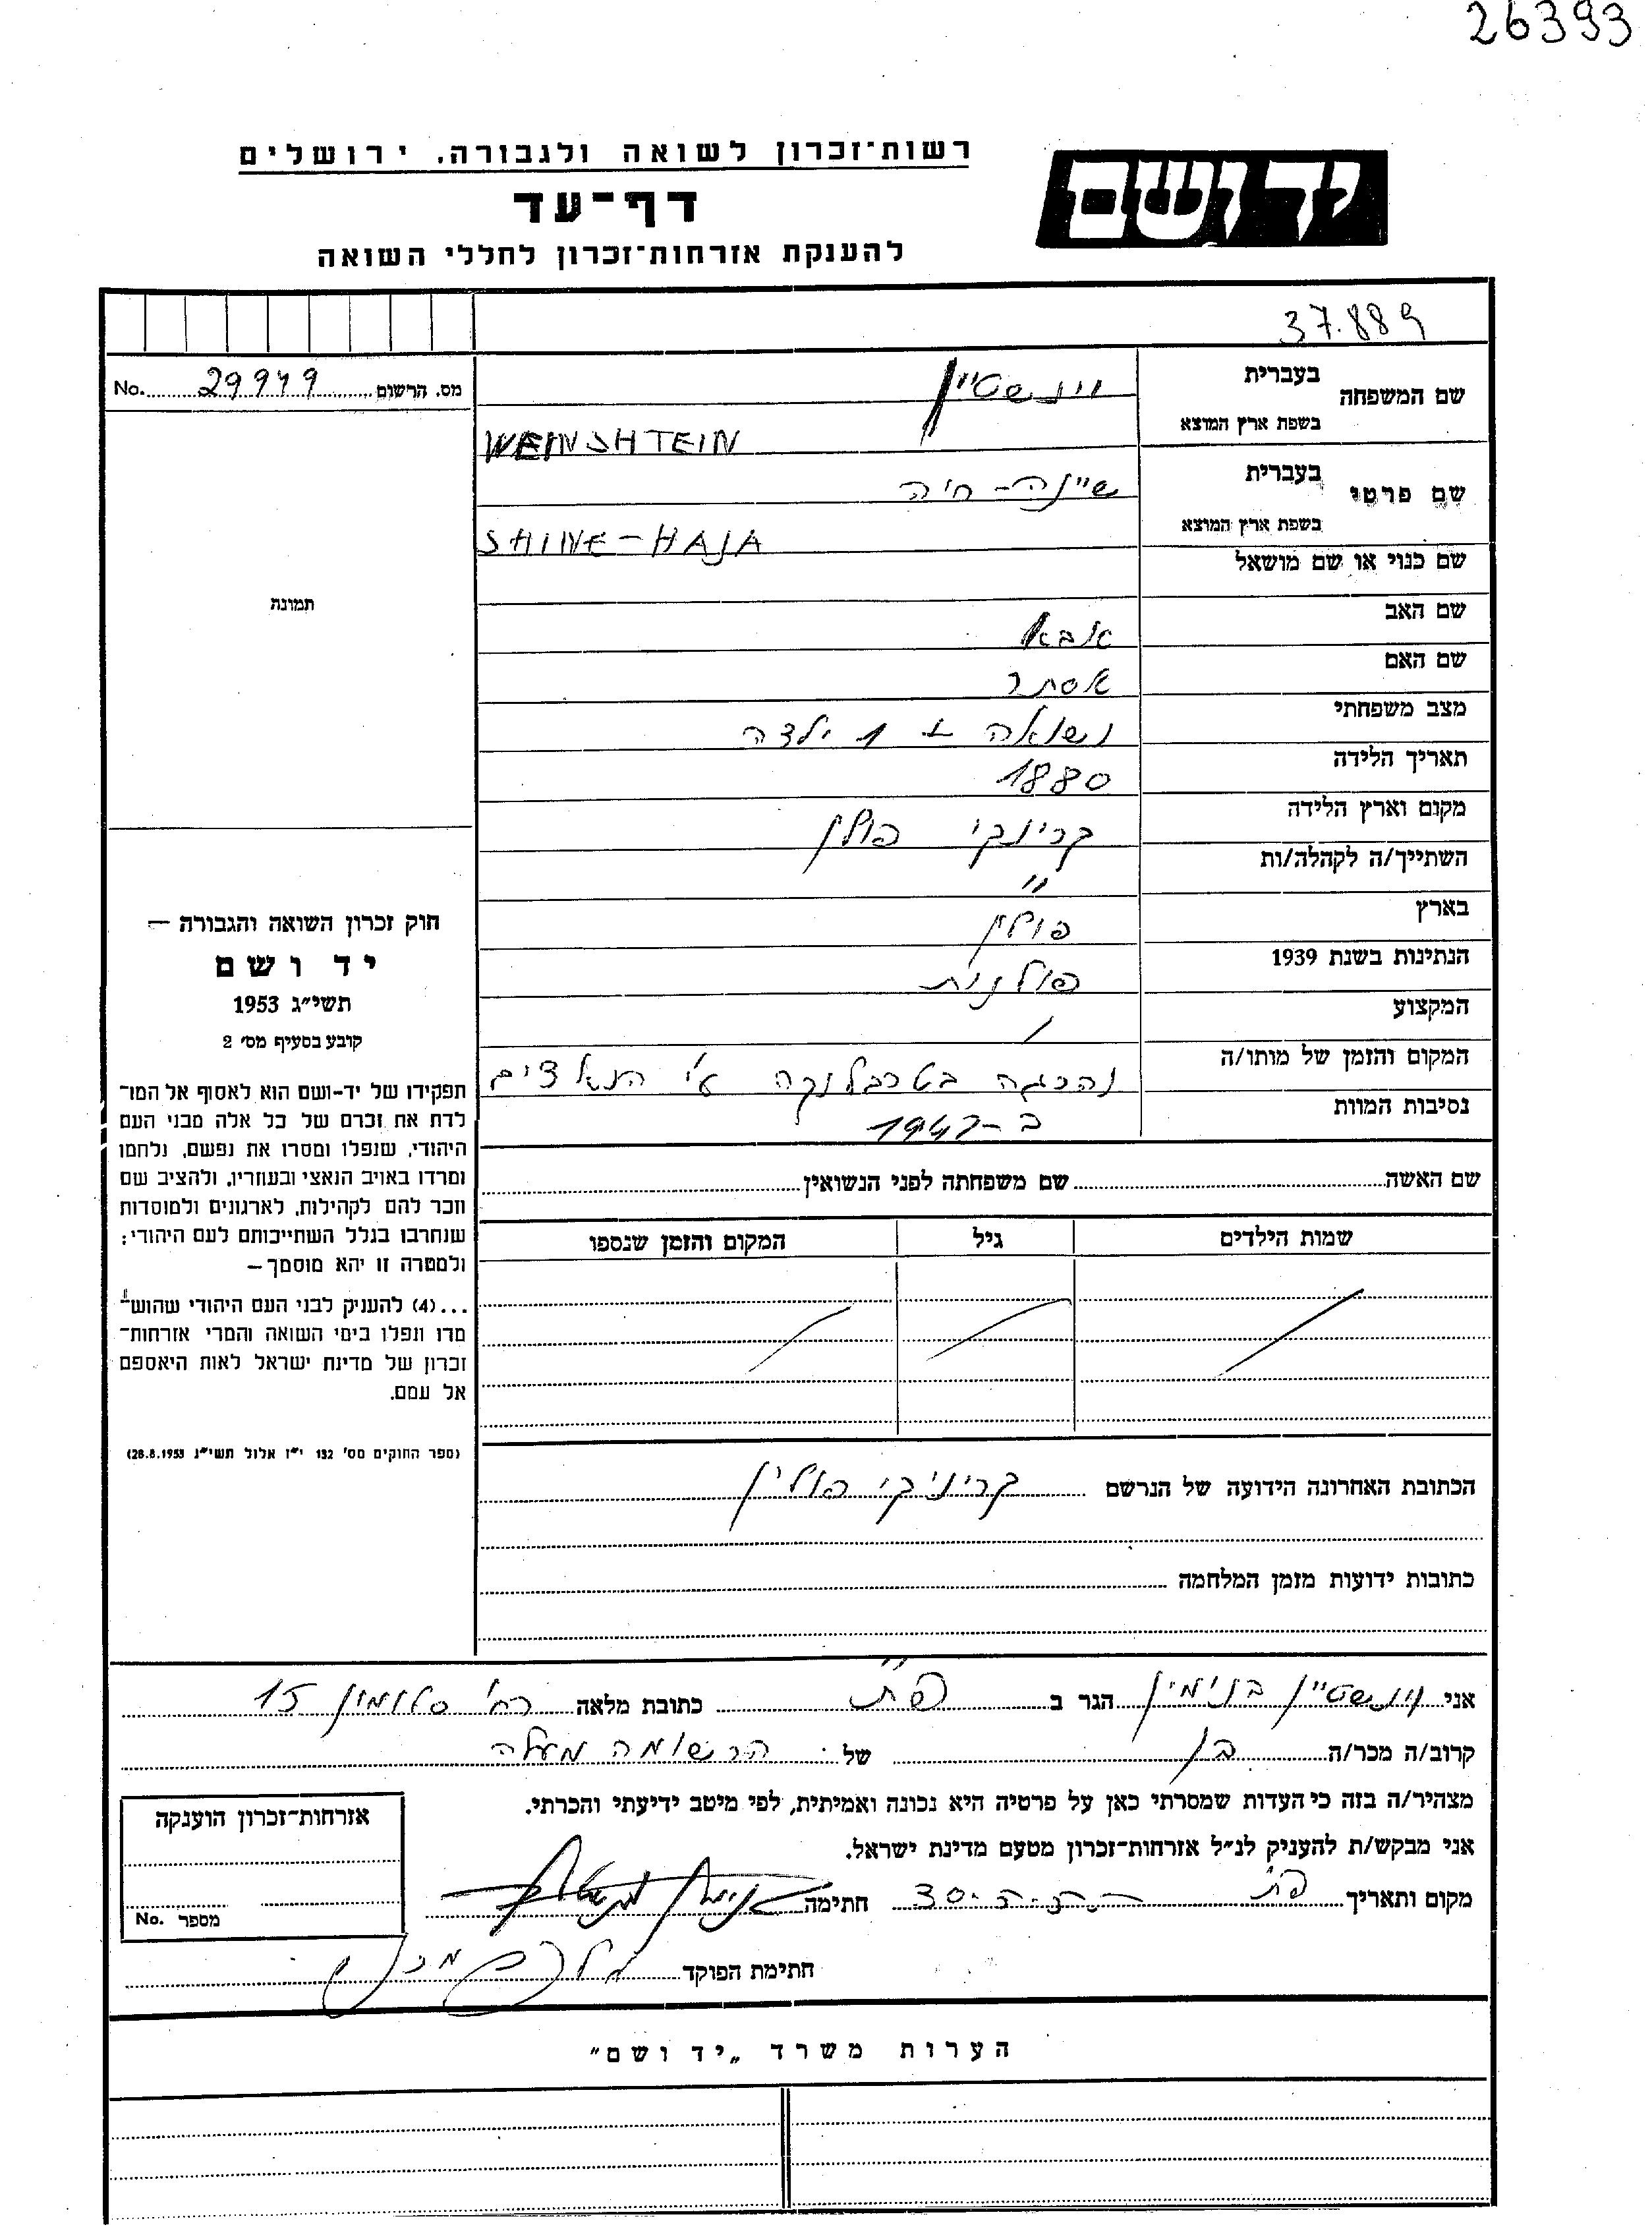 26393
רשות־זכרון לשואה ולגבורה, ירושלים
יד ושם
דף־עד
להענקת אזרחות־זכרון לחללי השואה
37.889
שם המשפחה בעברית וינשטיין
בשפת ארץ המוצא WEINSHTEIN
שם פרטי בעברית שיינה-חיה
בשפת ארץ המוצא SHINE-HAJA
שם כנוי או שם מושאל
שם האב אבא
שם האם אסתר
מצב משפחתי נשואה + 1 ילדה
תאריך הלידה 1880
מקום וארץ הלידה קרינקי פולין
השתייך/ה לקהלה/ות "
בארץ פולין
הנתינות בשנת 1939 פולנית
המקצוע /
המקום והזמן של מותו/ה נהרגה בטרבלנקה ע"י הנאצים
נסיבות המוות ב-1942
שם האשה שם משפחתה לפני הנשואין
שמות הילדים גיל המקום והזמן שנספו
הכתובת האחרונה הידועה של הנרשם קריניקי פולין
כתובות ידועות מזמן המלחמה
מס. הרשום 29949 No.
תמונה
חוק זכרון השואה והגבורה –
יד ושם
תשי"ג 1953
קובע בסעיף מס' 2
תפקידו של יד-ושם הוא לאסוף אל המו־
לדת את זכרם של כל אלה מבני העם
היהודי, שנפלו ומסרו את נפשם, נלחמו
ומרדו באויב הנאצי ובעוזריו, ולהציב שם
וזכר להם לקהילות, לארגונים ולמוסדות
שנחרבו בגלל השתייכותם לעם היהודי;
ולמטרה זו יהא מוסמך –
...(4) להעניק לבני העם היהודי שהוש־
מדו ונפלו בימי השואה והמרי אזרחות־
זכרון של מדינת ישראל לאות היאספם
אל עמם.
(ספר החוקים מס' 132 י"ז אלול תשי"ג 28.8.1953)
אני וינשטיין בנימין הגר ב פ"ת כתובת מלאה רח' סלומון 15
קרוב/ה מכר/ה בן של הרשומה מעלה
מצהיר/ה בזה כי העדות שמסרתי כאן על פרטיה היא נכונה ואמיתית, לפי מיטב ידיעתי והכרתי.
אני מבקש/ת להעניק לנ"ל אזרחות־זכרון מטעם מדינת ישראל.
מקום ותאריך פ"ת חתימה
חתימת הפוקד
אזרחות־זכרון הוענקה
מספר No.
הערות משרד „יד ושם"